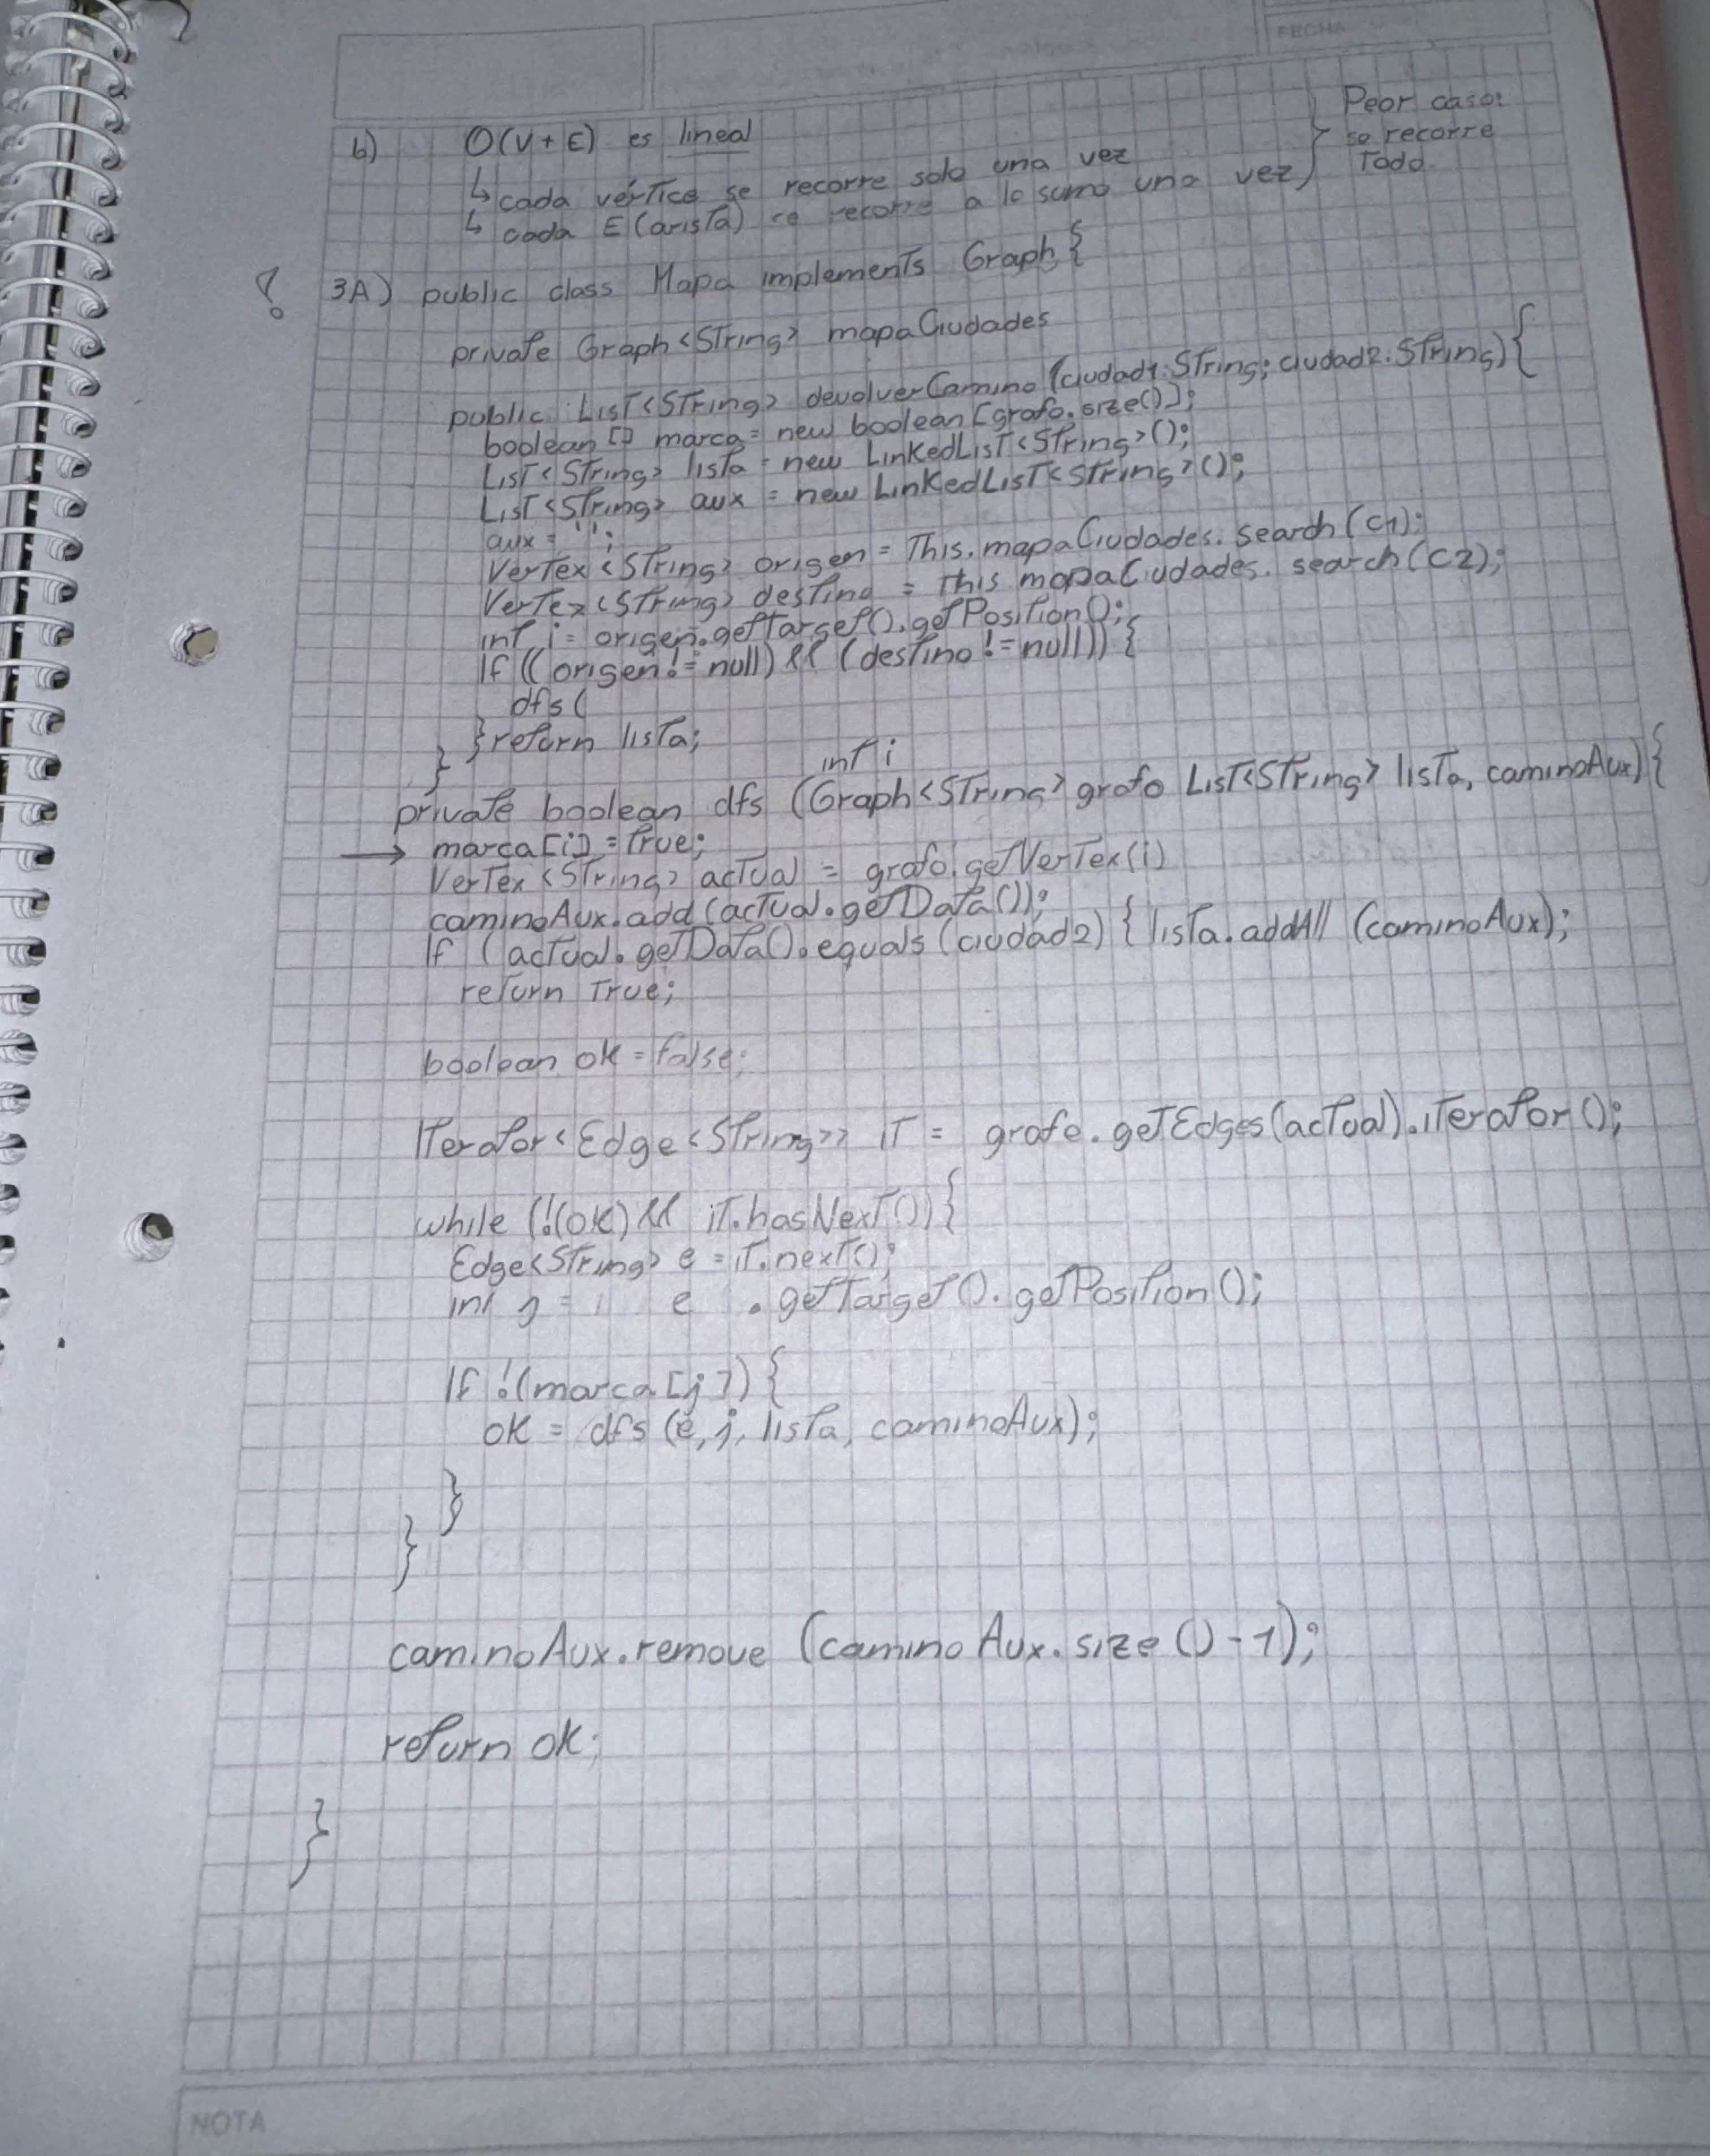 FECHA
b) O(V + E) es lineal
↳ cada vértice se recorre solo una vez
↳ cada E (arista) se recorre a lo sumo una vez
Peor caso:
se recorre
Todo.
3A) public class Mapa implements Graph {
private Graph<String> mapaCiudades
public List<String> devolverCamino (ciudad1:String; ciudad2:String){
boolean [] marca = new boolean [grafo.size()];
List<String> lista = new LinkedList<String>();
List<String> aux = new LinkedList<String>();
aux = '';
Vertex<String> origen = This.mapaCiudades.search(C1);
Vertex<String> destino = This mapaCiudades.search(C2);
int i = origen.getTarget().getPosition();
If ((origen != null) && (destino != null)) {
dfs (
} return lista;
}
int i
private boolean dfs (Graph<String> grafo List<String> lista, caminoAux) {
→ marca[i] = True;
Vertex<String> actual = grafo.getVertex(i)
caminoAux.add(actual.getData());
If (actual.getData().equals(ciudad2) { lista.addAll (caminoAux);
return True;
boolean ok = false;
Iterator<Edge<String>> iT = grafo.getEdges(actual).iterator();
while (!(ok) && iT.hasNext()){
Edge<String> e = iT.next();
int j = e .getTarget().getPosition();
If !(marca[j]) {
ok = dfs (e, j, lista, caminoAux);
}
}
caminoAux.remove (caminoAux.size()-1);
return ok;
}
NOTA